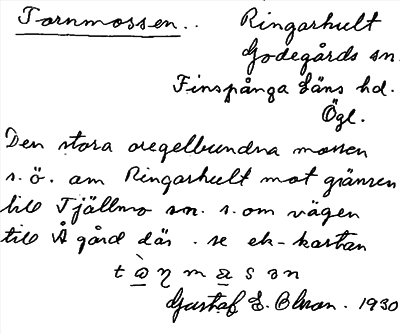 Tornmossen.. Ringarhult
Godegårds sn.
Finspånga läns hd.
Ögl.
Den stora oregelbundna mossen
s.ö. om Ringarhult mot gränsen
till Tjällmo sn. s. om vägen
till Å gård där . se ek-kartan
Gustaf E. Olsson. 1930